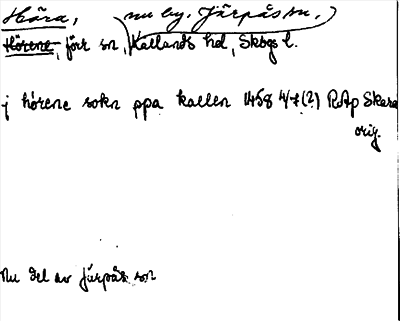 Höra, nu by. Järpås sn.)
Hörene, förr sn, Kållands hd, Skbgs l.
j hörene sokn ppa kallen 1458 4/7(?) RAp Skara
orig.
Nu del av Järpås sn